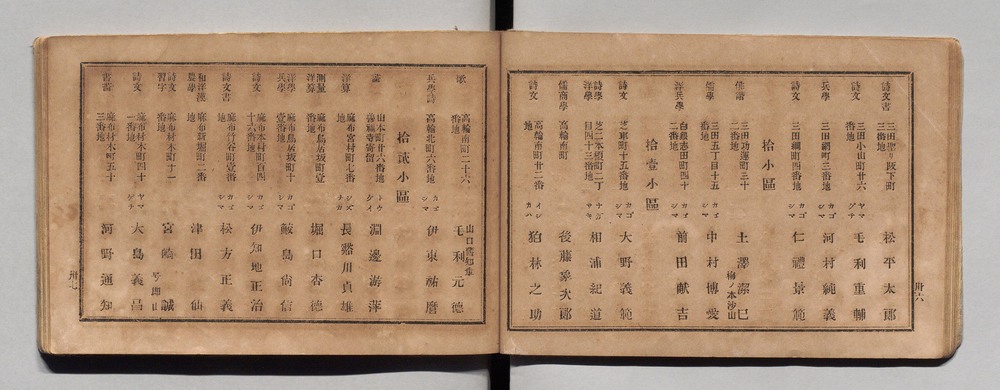 詩文書 三田聖リ阪下町 二番地 松平太郎
詩文 三田小山町廿六 番地 ヤマグチ 毛利重輔
兵學 三田綱町三番地 カゴシマ 河村純義
詩文 三田綱町四番地 カゴシマ 仁禮景範
拾小區
俳諧 三田功運町三十 二番地 土澤潔巳 梅ノ本沙山
儒學 三田五丁目十五 番地 カゴシマ 中村博愛
洋兵學 白銀志田町四十 二番地 カゴシマ 前田献吉
拾壹小區
詩文 芝東町十五番地 カゴシマ 大野義範
詩學 洋學 芝二本榎町二丁 目四十三番地 ナガサキ 相浦紀道
儒商學 高輪南町 後藤象次郎
詩文 高輪南町廿二番 地 イシカハ 狛林之助
卅六
歌 高輪南町二十六 番地 毛利元德 山口舊知事
兵學詩 高輪北町六番地 カゴシマ 伊東祐麿
拾貳小區
畫 山本町廿六番地 善福寺寄留 淵邊游萍
洋算 麻布宮村町七番 地 シズヲカ 長谿川貞雄
測量 洋算 麻布鳥居坂町壹 番地 堀口杏德
洋學 兵學 麻布鳥居坂町十 壹番地 カゴシマ 鮫島尙信
詩文 麻布本村町百四 十六番地 カゴシマ 伊知地正治
詩文書 麻布竹谷町壹番 地 カゴシマ 松方正義
和洋漢 農學 麻布新堀町二番 地 津田仙
詩文 習字 麻布材木町十一 番地 宮崎誠
詩文 麻布材木町四十 一番地 ヤマグチ 大島義昌
書畵 麻布材木町五十 三番地 河野通知
卅七